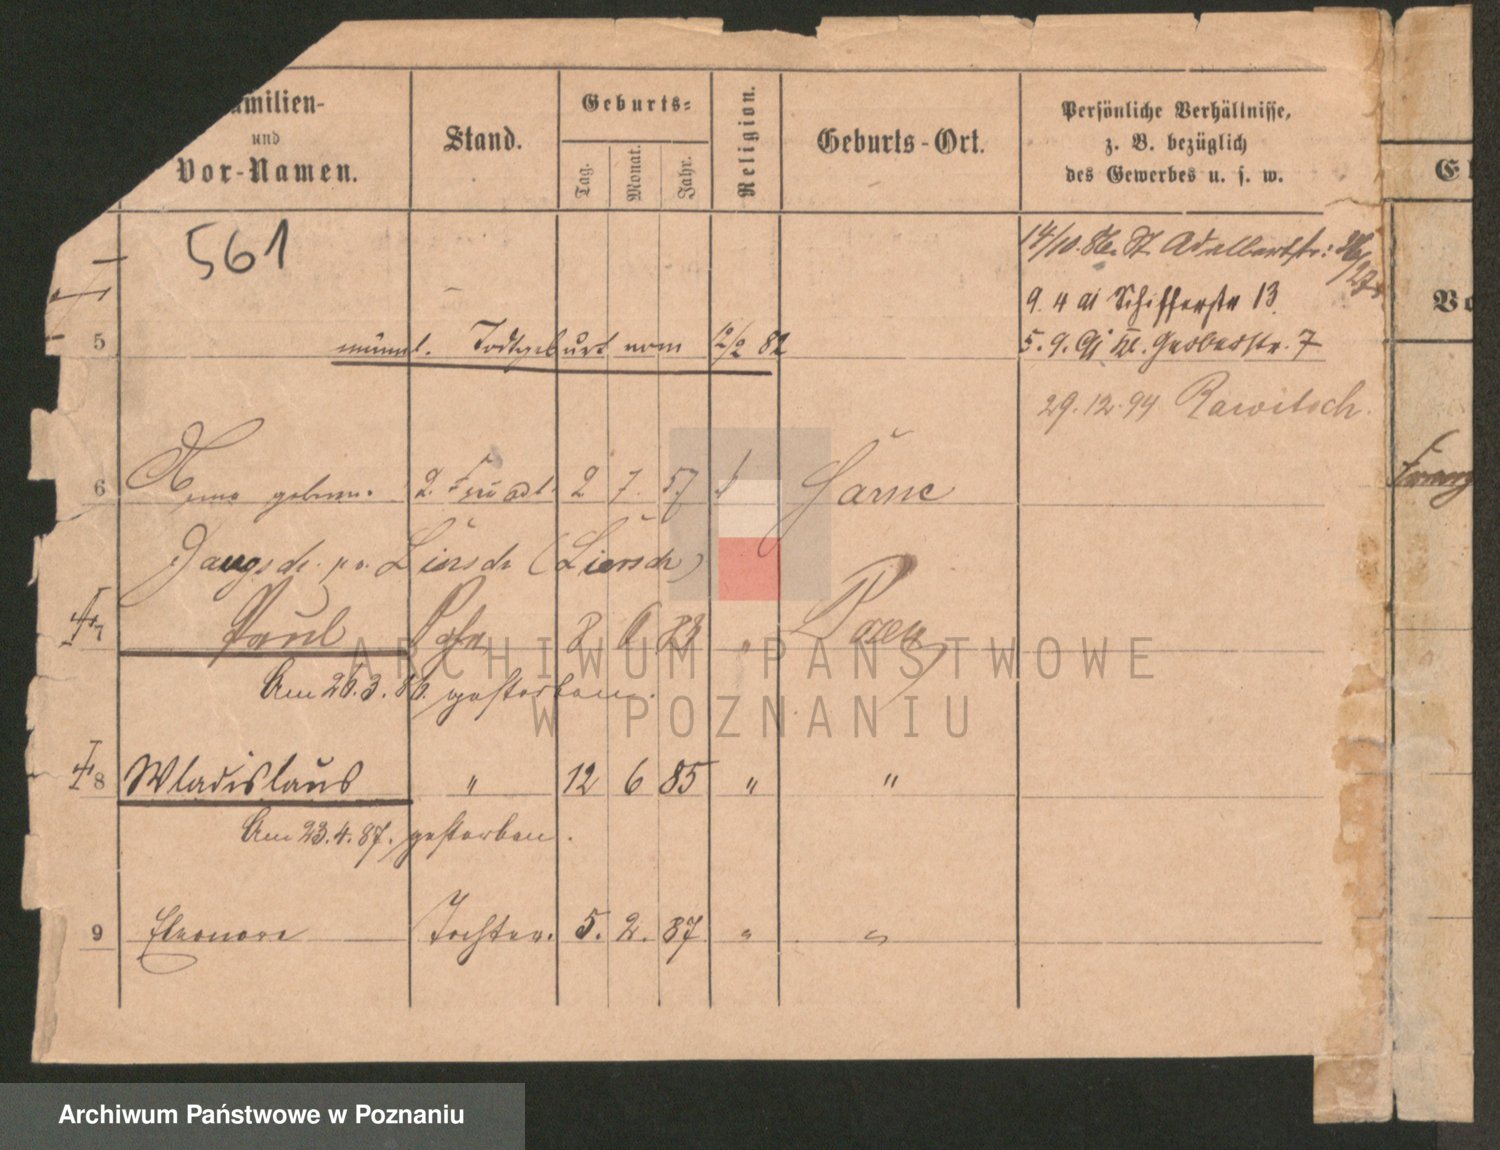 Familien-
und
Vor-Namen.
Stand.
Geburts-
Tag.
Monat.
Jahr.
Religion.
Geburts-Ort.
Persönliche Verhältnisse,
z. B. bezüglich
des Gewerbes u. s. w.
561
14/10. 86. St. Adalbertstr:
9. 4 91 Schifferstr 13.
5 männl. Todtgeburt vom 12/2 82
5. 9. 91 Kl. Gerberstr. 7
29.12.94 Rawitsch.
6 geboren. 2. Frau 2 7. 57 Sarne
Liersch (Liersch)
7 Paul Sohn 8 6 83 " Posen
Am 26.3.86. gestorben.
8 Wladislaus " 12 6 85 " "
Am 23.4.87. gestorben.
9 Eleonore Tochter. 5. 2. 87 " "
ARCHIWUM PAŃSTWOWE
W POZNANIU
Archiwum Państwowe w Poznaniu